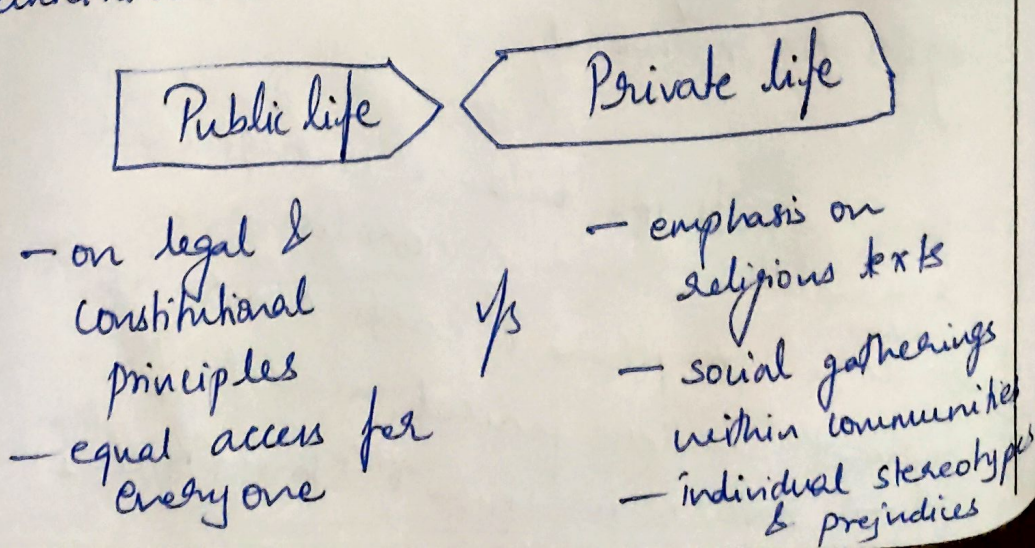 Public life
Private life
– on legal &
constitutional
principles
– equal access for
everyone
v/s
– emphasis on
religious texts
– social gatherings
within communities
– individual stereotypes
& prejudices